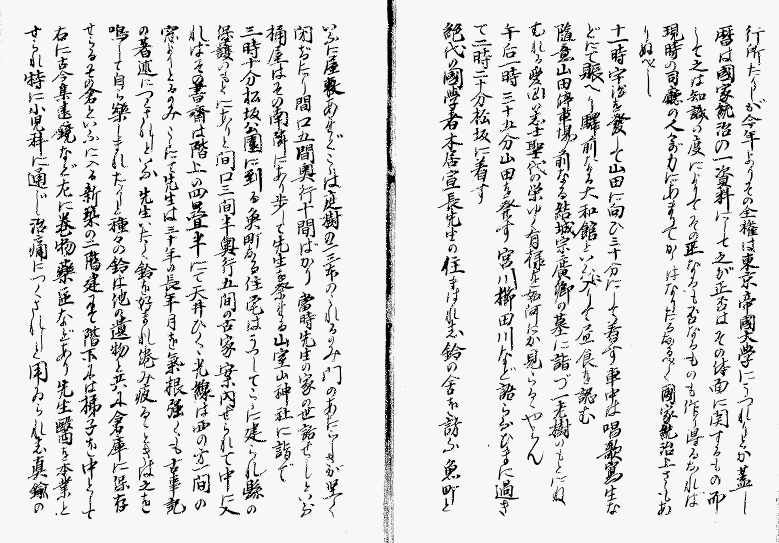 行所たりしが今年よりその全権は東京帝國大学にうつれりとか蓋し
暦は國家統治の一資料にして之が正否はその体面に関するもの而
して之は知識の度によりてその正なるも否なるものも作り得るなれば
現時の司廳の人
國家統治上さもあ
りぬべし
十一時宇治を發して山田に向ひ三十分にして着す車中は唱歌寫生な
どにて賑へり驛前なる大和館といふに入りて昼食を認む
隨意山田停車場前なる結城宗廣卿の墓に詣づ一老樹のもとに
むれる
忠士聖代の栄ゆく有様を如何にか見らるゝやらん
午后一時三十五分山田を発す宮川櫛田川など語らふひまに過ぎ
て二時二十分松坂に着す
絶代の國学者本居宣長先生の住まはれし鈴の舎を訪ふ魚町と
いふに屋敷あせてこゝは庭樹の二三本のこれるのみ門のあたり
間口五間奥行十間ばかり當時先生の家の世話せしといふ
桶屋はその南隣にあり歩して先生を祭れる山室山神社に詣で
三時十分松坂公園に到る魚町なる住宅はうつしてこゝに建られ縣の
保護のもとにありと間口三間半奥行五間の古家案内せられて中に入
ればその書斎は階上の四畳半にて天井ひくゝ光線は西の方一間の
窓よりとるのみこゝにて先生は三十年の長年月を氣根強くも古事記
の著述につくされしといふ先生いたく鈴を好まれ
疲るゝときは之を
鳴して自ら楽しまれたりと種々の鈴は他の遺物と共に倉庫に保存
せらるその倉といふにへる新築の二階建にて階下には梯子を中として
右に古今集遠鏡など左に巻物藥
などあり先生醫を本業と
せられ特に小児科に通じ
治痛につくされしと用ゐられし真鍮の